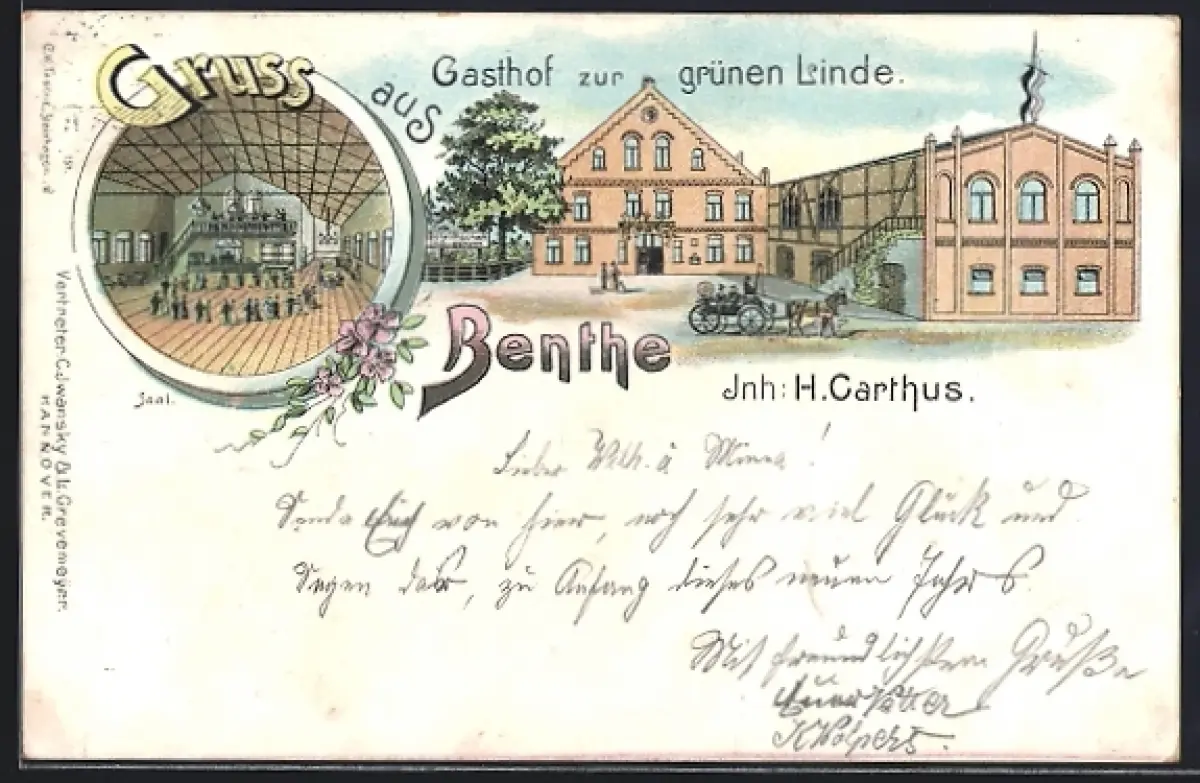 Gruss
aus
Gasthof zur grünen Linde.
Benthe
Jnh: H. Carthus.
Saal.
Vertreter C. Jwansky & L. Grevemeyer.
HANNOVER.
Lieber Wilh. u Minna!
Sende Euch von hier, noch sehr viel Glück und
Segen das, zu Anfang dieses neuen Jahres
Mit freundlichstem Gruße
Euer Vetter
K Wolpers.